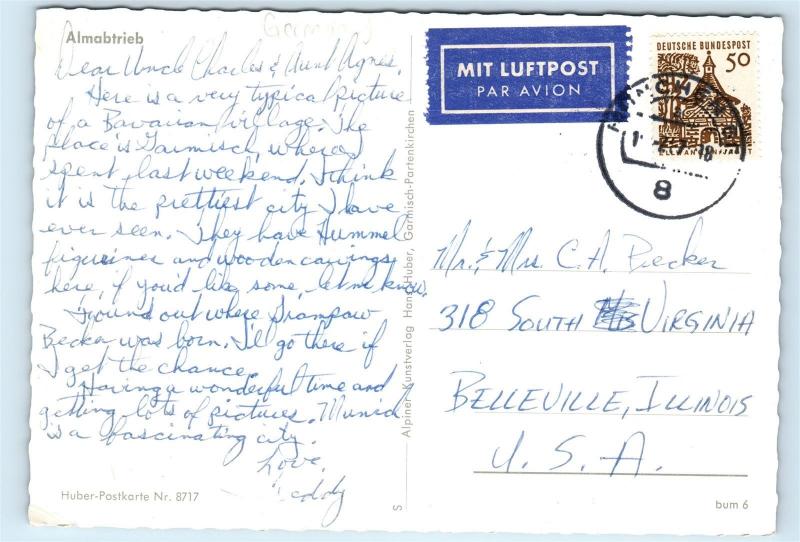 Germany
Almabtrieb
Dear Uncle Charles & Aunt Agnes,
Here is a very typical picture
of a Bavarian village. The
place is Garmisch, where I
spent last weekend. I think
it is the prettiest city I have
ever seen. They have Hummel
figurines and wooden carvings
here, if you'd like some, let me know.
Found out where Grampaw
Becker was born. I'll go there if
I get the chance.
Having a wonderful time and
getting lots of pictures. Munich
is a fascinating city.
Love,
Huber-Postkarte Nr. 8717
Alpiner Kunstverlag Hans Huber, Garmisch-Partenkirchen
S
MIT LUFTPOST
PAR AVION
DEUTSCHE BUNDESPOST
50
MÜNCHEN
18
8
Mr. & Mrs. C. A. Becker
318 SOUTH VIRGINIA
BELLEVILLE, ILLINOIS
U. S. A.
bum 6